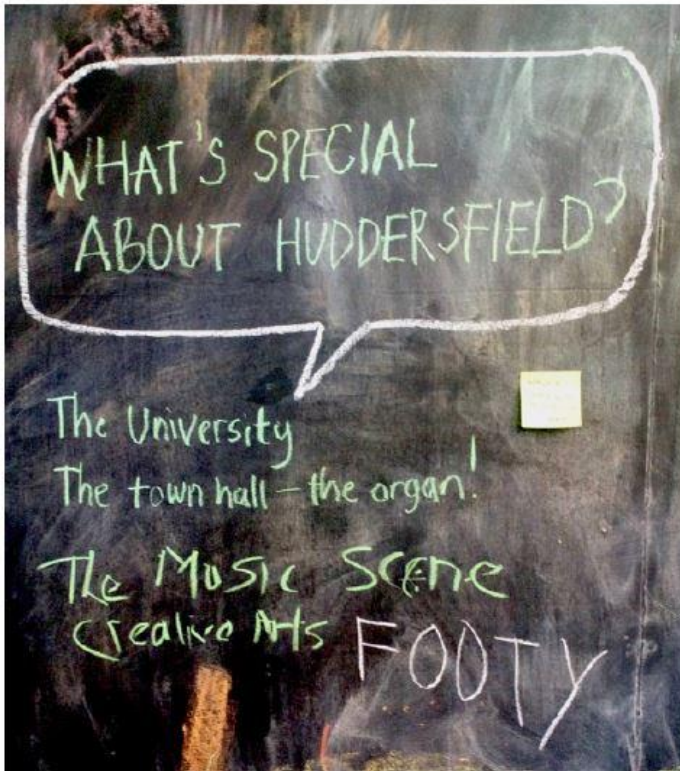 WHAT'S SPECIAL
ABOUT HUDDERSFIELD?
The University
The town hall – the organ!
The Music Scene
Creative Arts
FOOTY